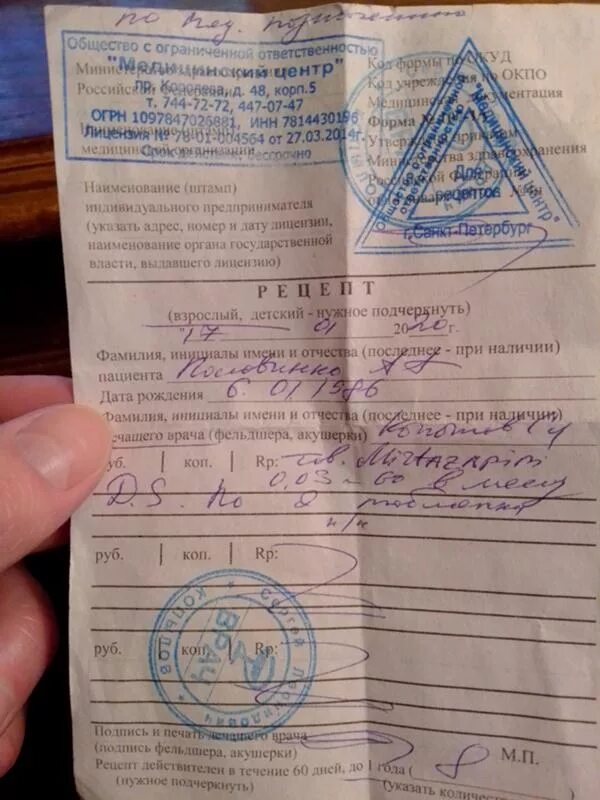 по мед. показаниям
Общество с ограниченной ответственностью
"Медицинский центр"
пр. Королева, д. 48, корп.5
т. 744-72-72, 447-07-47
ОГРН 1097847026881, ИНН 7814430196
Лицензия № 78-01-004564 от 27.03.2014г.
Срок действия: бессрочно
Министерство
Российской
медицинской организации
Код формы по ОКУД
Код учреждения по ОКПО
Медицинская документация
Форма №
Утверждена приказом
Министерства здравоохранения
Российской Федерации
Общество с ограниченной ответственностью
"Медицинский центр"
Для
рецептов
г.Санкт-Петербург
Наименование (штамп)
индивидуального предпринимателя
(указать адрес, номер и дату лицензии,
наименование органа государственной
власти, выдавшего лицензию)
РЕЦЕПТ
(взрослый, детский - нужное подчеркнуть)
"17 01 2020г.
Фамилия, инициалы имени и отчества (последнее - при наличии)
пациента
Дата рождения 6. 01 1986
Фамилия, инициалы имени и отчества (последнее - при наличии)
лечащего врача (фельдшера, акушерки)
руб. | коп. | Rp:
0,03 - 60 в месяц
D.S. По 2 таблетки
н/н
руб. | коп. | Rp:
руб. | коп. | Rp:
Копылов * Сергей *
ВРАЧ
Подпись и печать лечащего врача
(подпись фельдшера, акушерки)
М.П.
Рецепт действителен в течение 60 дней, до 1 года (
(нужное подчеркнуть)
(указать количество